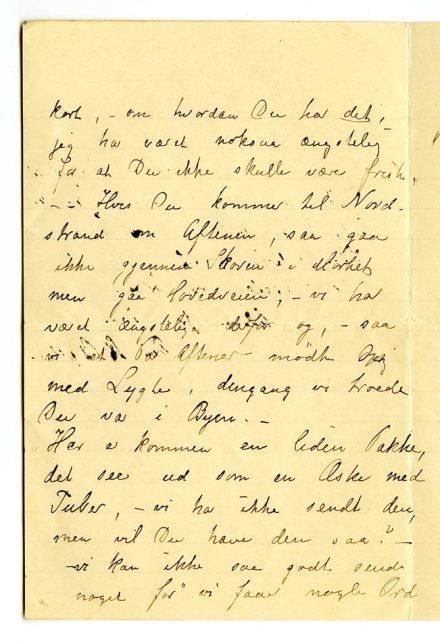 kort, - om hvordan Du har det,
jeg har været noksaa ængstelig
for at Du ikke skulle være frisk.
- - Hvis Du kommer til Nord-
strand om Aftenen, saa gaa
ikke gjennem Skoven i Mørket
men gaa Hovedveien, - vi har
været ængstelig derfor og, - saa
vi et Par Aftener mødte
med Lygte, dengang vi troede
Du var i Byen. -
Her er kommen en liden Pakke,
det seer ud som en Æske med
Tuber, - vi har ikke sendt den,
men vil Du have den saa? -
- vi kan ikke saa godt sende
noget før vi faar nogle Ord